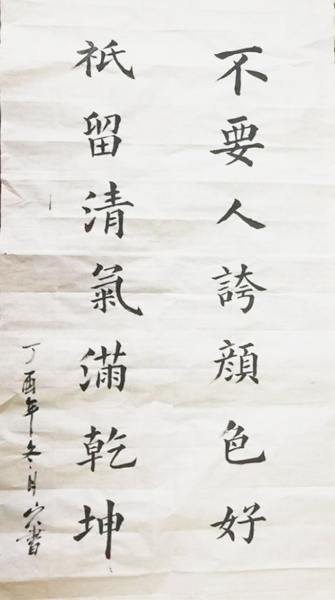 不要人誇顔色好
祇留清氣滿乾坤
丁酉年冬月穴書